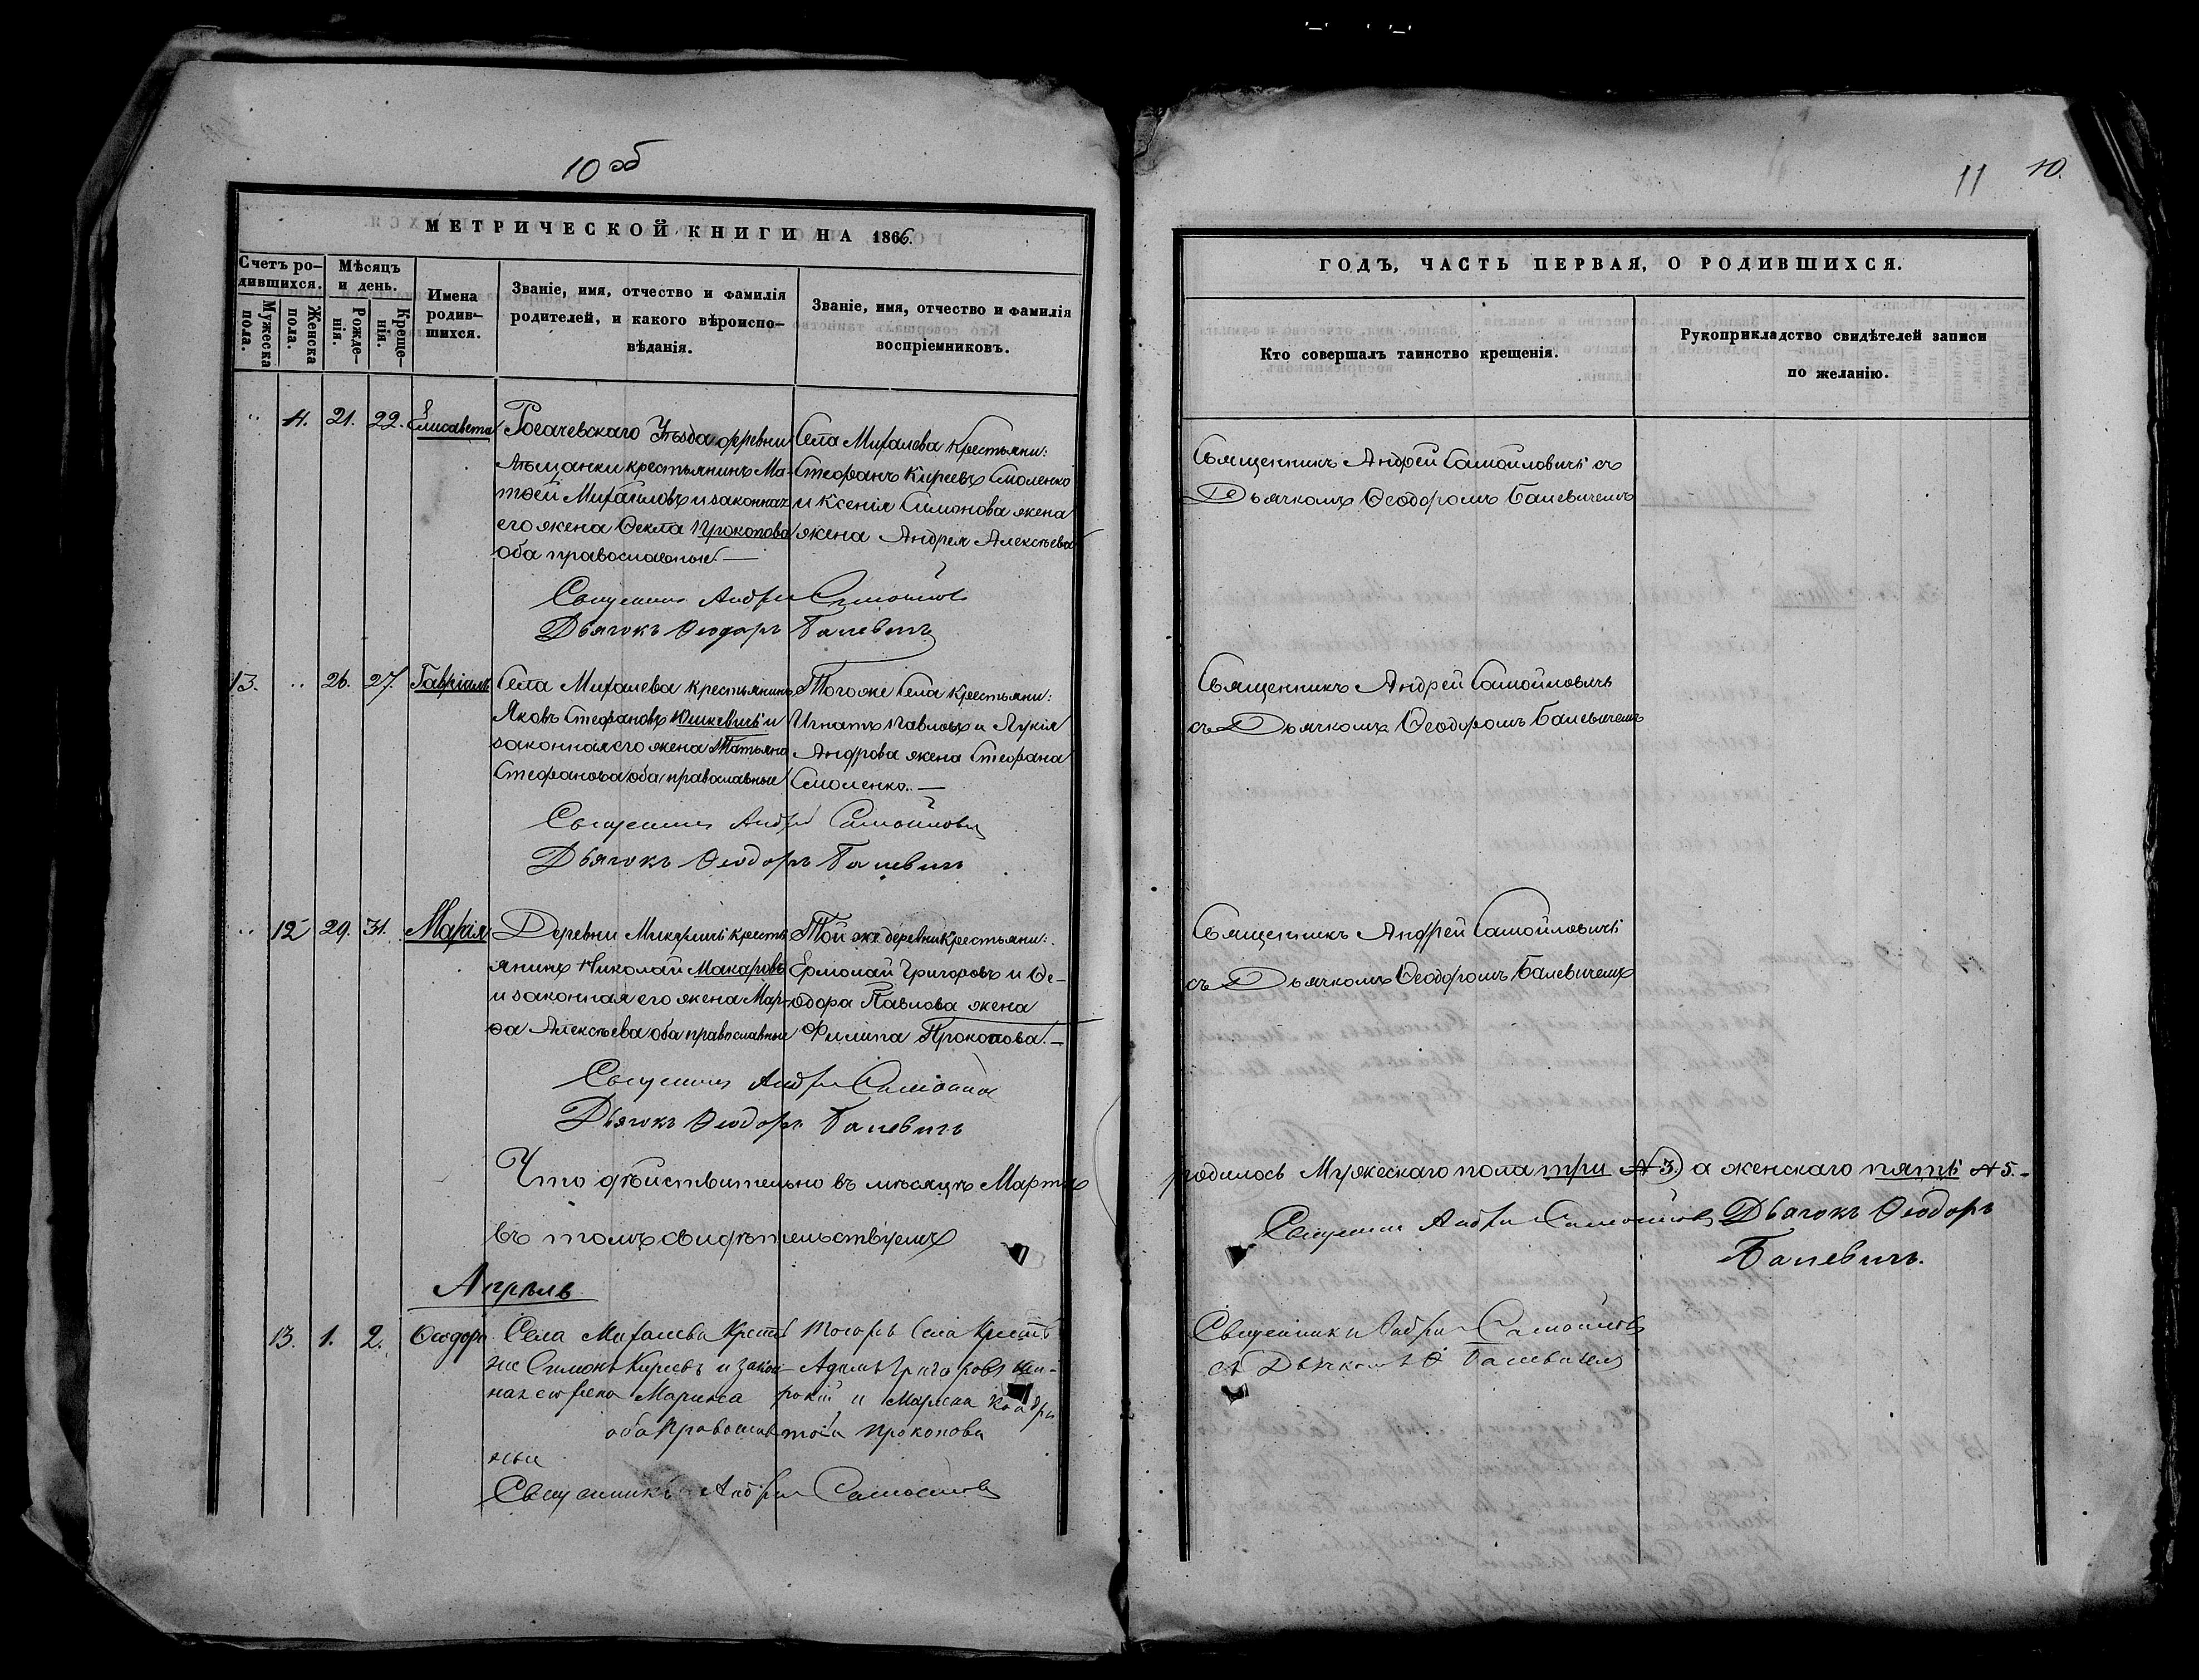 10 об
МЕТРИЧЕСКОЙ КНИГИ НА 1866.
Счетъ ро-
дившихся.
Мѣсяцъ
и день.
Мужеска
пола.
Женска
пола.
Рожде-
нія.
Креще-
нія.
Имена
родив-
шихся.
Званіе, имя, отчество и фамилія
родителей, и какого вѣроиспо-
вѣданія.
Званіе, имя, отчество и фамилія
воспріемниковъ.
21. 22. Елисавета
Рогачевскаго Уѣзда деревни
крестьянинъ Ма-
твей Михайловъ и законная
его жена Ѳекла Прокопова
оба православные.—
Села Михалева Крестьяни:
Стефанъ Киреевъ Смоленко
и Ксенія Симонова жена
жена Андрея Алексѣева
Священникъ Андрей Самойловичъ
Дьячокъ Ѳеодоръ Балевичъ
13. " 26. 27. Гавріилъ
Села Михалева крестьянинъ
Яковъ Стефановъ Юшкевичъ и
законная его жена Татьяна
Стефанова оба православные
Того же Села Крестьяни:
Игнатъ Павловъ и Лукія
жена Стефана
Смоленко.—
Священникъ Андрей Самойловичъ
Дьячокъ Ѳеодоръ Балевичъ
" 12 29. 31. Марія
Деревни Микуличъ кресть
янинъ Николай Макаровъ
и законная его жена Мар-
ѳа Алексѣева оба православные
Той же деревни Крестьяни:
Ермолай Григоровъ и Ѳе-
одора Павлова жена
Филипа Прокопова.—
Священникъ Андрей Самойловичъ
Дьячокъ Ѳеодоръ Балевичъ
Что дѣйствительно въ мѣсяцѣ Мартѣ
въ томъ свидѣтельствуемъ
Апрѣль
13. 1. 2. Ѳеодора
Села Михалева Крестья
Симонъ Киреевъ и закон-
ная его жена Марина
оба Православ
ные
Тогожъ Села Крестья
Адамъ Григоровъ
и Марина
Прокопова
Священникъ Андрей Самойловичъ
11 10.
ГОДЪ, ЧАСТЬ ПЕРВАЯ, О РОДИВШИХСЯ.
Кто совершалъ таинство крещенія.
Рукоприкладство свидѣтелей записи
по желанію.
Священникъ Андрей Самойловичъ съ
Дьячкомъ Ѳеодоромъ Балевичемъ
Священникъ Андрей Самойловичъ
съ Дьячкомъ Ѳеодоромъ Балевичемъ
Священникъ Андрей Самойловичъ
съ Дьячкомъ Ѳеодоромъ Балевичемъ
родилось Мужескаго пола три № 3) а женскаго пять № 5.-
Священникъ Андрей Самойловичъ Дьячокъ Ѳеодоръ
Балевичъ.
Священникъ Андрей Самойловичъ
съ Дьячкомъ Ѳ Балевичемъ